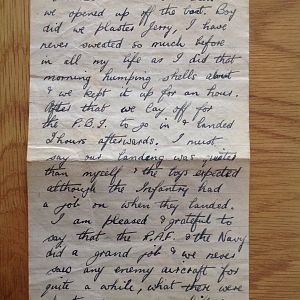 we opened up off the boat. Boy
did we plaster Jerry, I have
never sweated so much before
in all my life as I did that
morning humping shells about
& we kept it up for an hour.
After that we lay off for
the P.B.I. to go in & landed
3 hours afterwards. I must
say our landing was quieter
than myself & the boys expected
although the Infantry had
a job on when they landed.
I am pleased & grateful to
say that the R.A.F. & the Navy
did a grand job & we never
saw any enemy aircraft for
quite a while, what there were